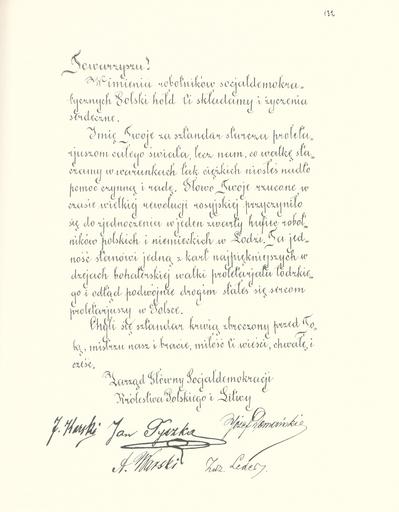 122
Towarzyszu!
W imieniu robotników socjaldemokra-
tycznych Polski hołd Ci składamy i życzenia
serdeczne.
Imię Twoje za sztandar starcza proleta-
rjuszom całego świata, lecz nam, co walkę sta-
czamy w warunkach tak ciężkich niosłeś nadto
pomoc czynną i radę. Słowo Twoje rzucone w
czasie wielkiej rewolucji rosyjskiej przyczyniło
się do zjednoczenia w jeden zwarty hufiec robot-
ników polskich i niemieckich w Łodzi. Ta jed-
ność stanowi jedną z kart najpiękniejszych w
dziejach bohaterskiej walki proletarjatu łódzkie-
go i odtąd podwójnie drogim stałeś się sercom
proletarjuszy w Polsce.
Chyli się sztandar krwią zbroczony przed To-
bą, mistrzu nasz i bracie, miłość Ci wieści, chwałę i
cześć.
Zarząd Główny Socjaldemokracji
Królestwa Polskiego i Litwy
J. Karski Jan Tyszka
A. Warski Zdz. Leder